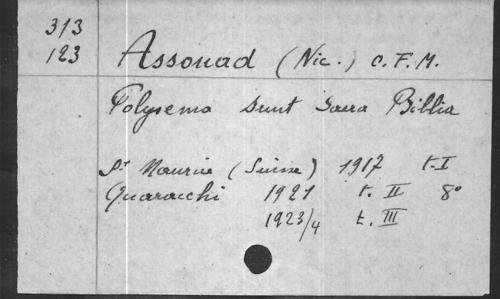 313
123
Assouad (Nic.) O.F.M.
Polysema sunt Sacra Biblia
St Maurice (Suisse) 1917 t. I
Quaracchi 1921 t. II 8°
1923/4 t. III